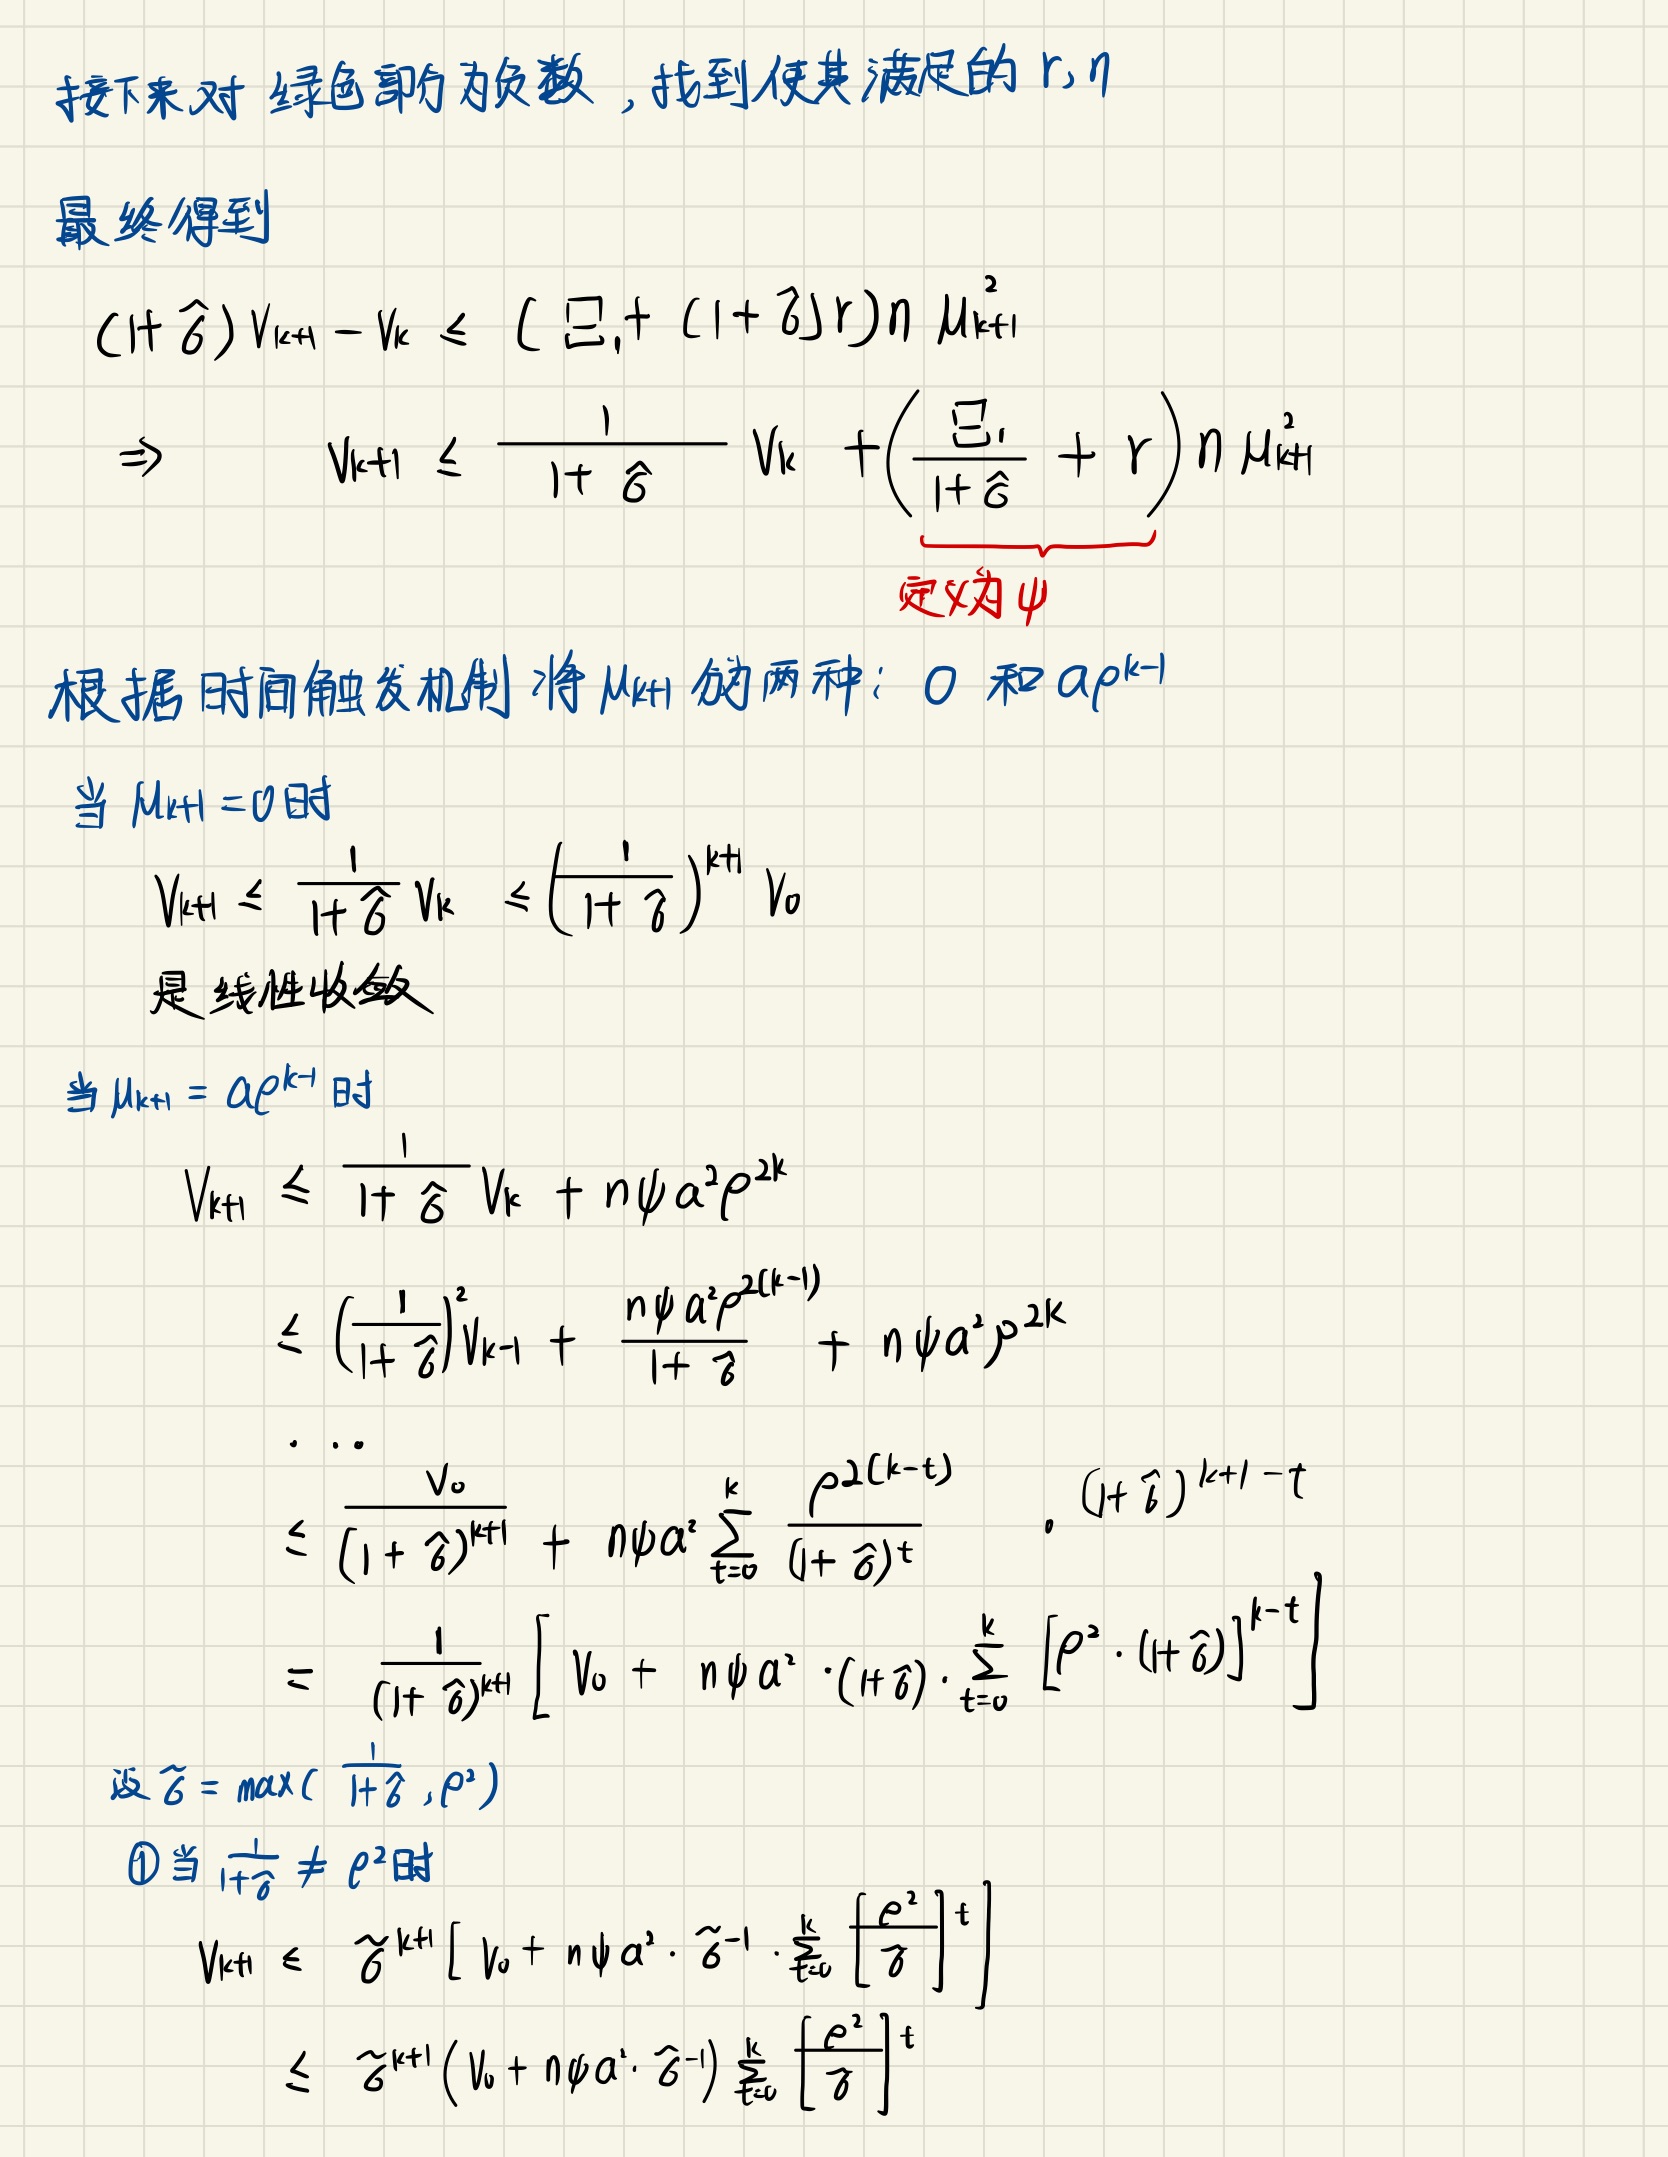 接下来对 绿色部分为负数 ,找到使其满足的 r, η
最终得到
(1+ σ̂) V_{k+1} − V_k ≤ ( Ξ_1 + (1+ σ̂) r) n μ_{k+1}^2
⇒ V_{k+1} ≤ \frac{1}{1+ σ̂} V_k + ( \frac{Ξ_1}{1+ σ̂} + r ) n μ_{k+1}^2
定义为 ψ
根据时间触发机制 将 μ_{k+1} 分为两种: 0 和 aρ^{k-1}
当 μ_{k+1} = 0 时
V_{k+1} ≤ \frac{1}{1+ σ̂} V_k ≤ ( \frac{1}{1+ σ̂} )^{k+1} V_0
是线性收敛
当 μ_{k+1} = aρ^{k-1} 时
V_{k+1} ≤ \frac{1}{1+ σ̂} V_k + nψa^2ρ^{2k}
≤ ( \frac{1}{1+ σ̂} )^2 V_{k-1} + \frac{nψa^2ρ^{2(k-1)}}{1+ σ̂} + nψa^2ρ^{2k}
...
≤ \frac{V_0}{(1+ σ̂)^{k+1}} + nψa^2 \sum_{t=0}^{k} \frac{ρ^{2(k-t)}}{(1+ σ̂)^t} · (1+ σ̂)^{k+1-t}
= \frac{1}{(1+ σ̂)^{k+1}} [ V_0 + nψa^2 · (1+ σ̂) · \sum_{t=0}^{k} [ρ^2 · (1+ σ̂)]^{k-t} ]
设 σ̃ = max( \frac{1}{1+ σ̂} , ρ^2 )
① 当 \frac{1}{1+ σ̂} ≠ ρ^2 时
V_{k+1} ≤ σ̃^{k+1} [ V_0 + nψa^2 · σ̃^{-1} · \sum_{t=0}^{k} [ \frac{ρ^2}{σ̃} ]^t ]
≤ σ̃^{k+1} ( V_0 + nψa^2 · σ̃^{-1} ) \sum_{t=0}^{k} [ \frac{ρ^2}{σ̃} ]^t